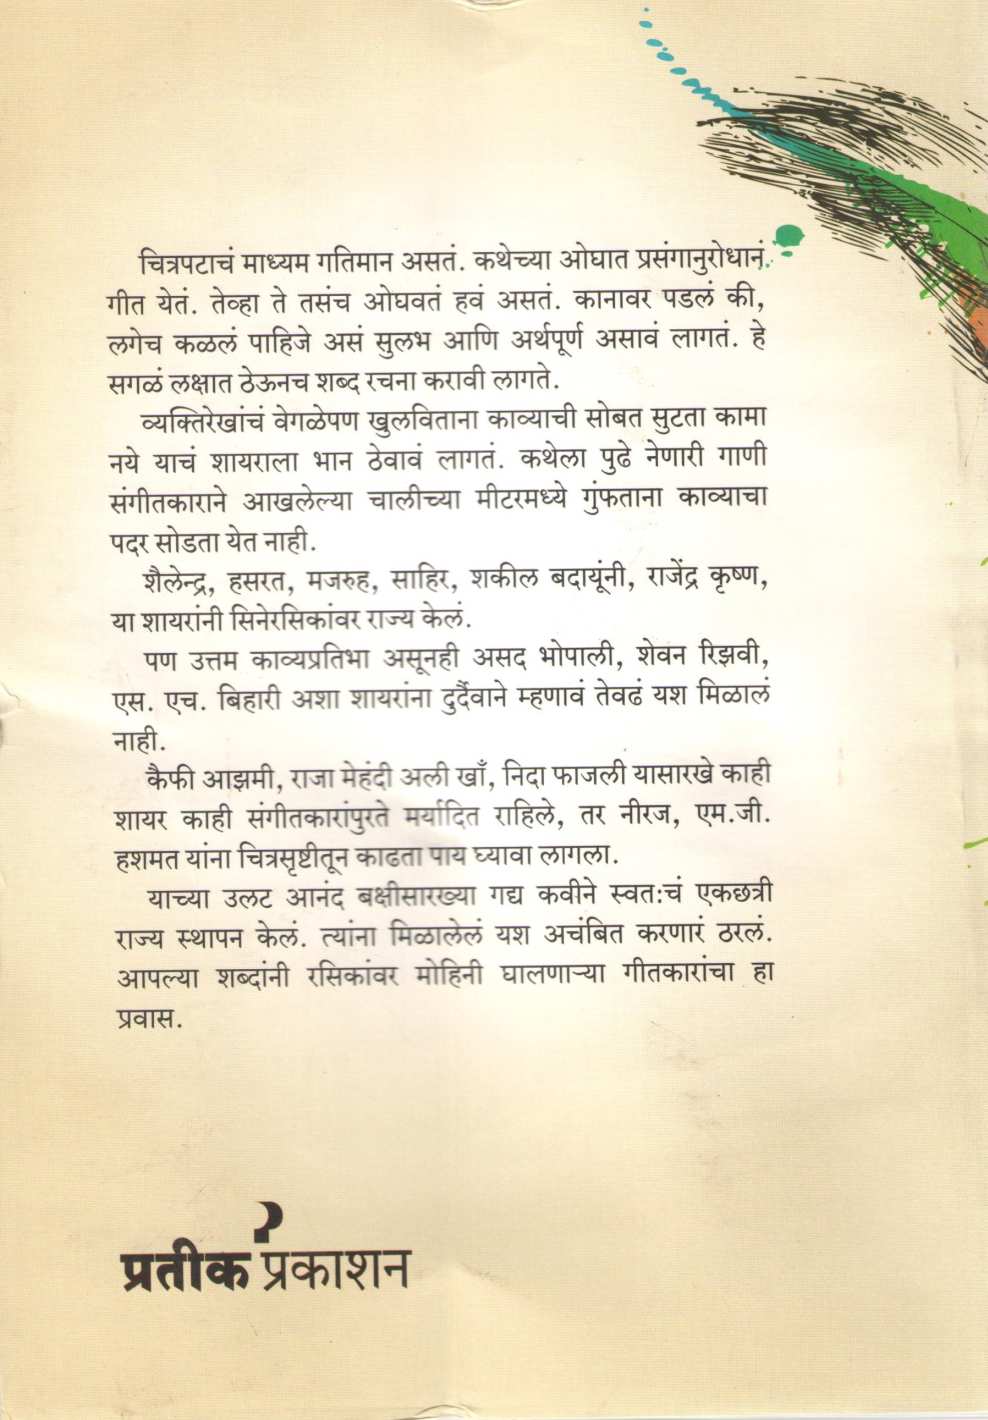 चित्रपटाचं माध्यम गतिमान असतं. कथेच्या ओघात प्रसंगानुरोधानं
गीत येतं. तेव्हा ते तसंच ओघवतं हवं असतं. कानावर पडलं की,
लगेच कळलं पाहिजे असं सुलभ आणि अर्थपूर्ण असावं लागतं. हे
सगळं लक्षात ठेऊनच शब्द रचना करावी लागते.
व्यक्तिरेखांचं वेगळेपण खुलविताना काव्याची सोबत सुटता कामा
नये याचं शायराला भान ठेवावं लागतं. कथेला पुढे नेणारी गाणी
संगीतकाराने आखलेल्या चालीच्या मीटरमध्ये गुंफताना काव्याचा
पदर सोडता येत नाही.
शैलेन्द्र, हसरत, मजरुह, साहिर, शकील बदायूंनी, राजेंद्र कृष्ण,
या शायरांनी सिनेरसिकांवर राज्य केलं.
पण उत्तम काव्यप्रतिभा असूनही असद भोपाली, शेवन रिझवी,
एस. एच. बिहारी अशा शायरांना दुर्दैवाने म्हणावं तेवढं यश मिळालं
नाही.
कैफी आझमी, राजा मेहंदी अली खाँ, निदा फाजली यासारखे काही
शायर काही संगीतकारांपुरते मर्यादित राहिले, तर नीरज, एम.जी.
हशमत यांना चित्रसृष्टीतून काढता पाय घ्यावा लागला.
याच्या उलट आनंद बक्षीसारख्या गद्य कवीने स्वत:चं एकछत्री
राज्य स्थापन केलं. त्यांना मिळालेलं यश अचंबित करणारं ठरलं.
आपल्या शब्दांनी रसिकांवर मोहिनी घालणाऱ्या गीतकारांचा हा
प्रवास.
प्रतीक प्रकाशन